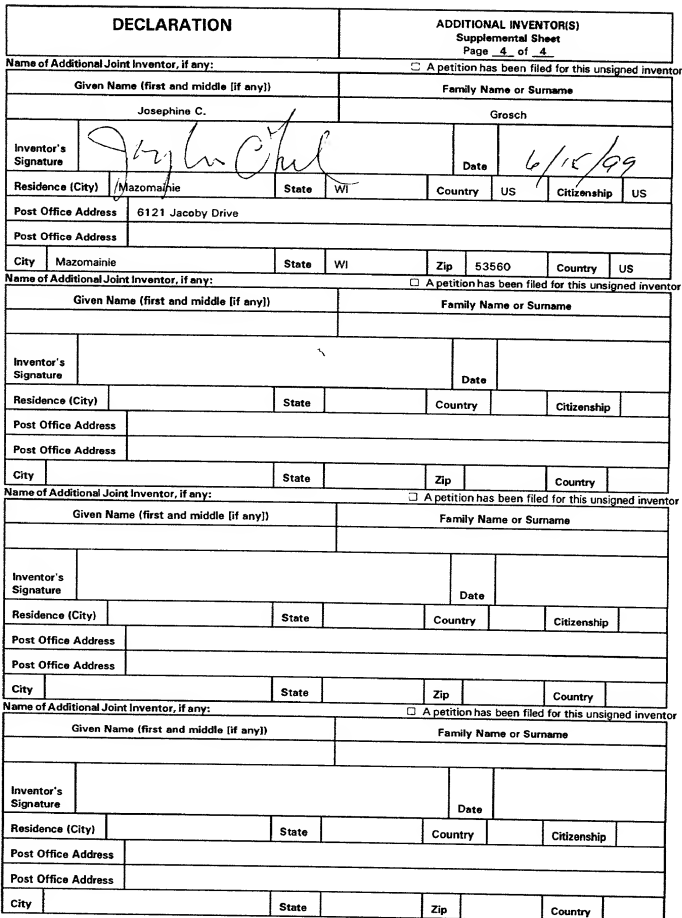 DECLARATION
ADDITIONAL INVENTOR(S)
Supplemental Sheet
Page 4 of 4
Name of Additional Joint Inventor, if any: ☐ A petition has been filed for this unsigned inventor
Given Name (first and middle [if any]) Family Name or Surname
Josephine C. Grosch
Inventor's
Signature Date 6/15/99
Residence (City) Mazomainie State WI Country US Citizenship US
Post Office Address 6121 Jacoby Drive
Post Office Address
City Mazomainie State WI Zip 53560 Country US
Name of Additional Joint Inventor, if any: ☐ A petition has been filed for this unsigned inventor
Given Name (first and middle [if any]) Family Name or Surname
Inventor's
Signature Date
Residence (City) State Country Citizenship
Post Office Address
Post Office Address
City State Zip Country
Name of Additional Joint Inventor, if any: ☐ A petition has been filed for this unsigned inventor
Given Name (first and middle [if any]) Family Name or Surname
Inventor's
Signature Date
Residence (City) State Country Citizenship
Post Office Address
Post Office Address
City State Zip Country
Name of Additional Joint Inventor, if any: ☐ A petition has been filed for this unsigned inventor
Given Name (first and middle [if any]) Family Name or Surname
Inventor's
Signature Date
Residence (City) State Country Citizenship
Post Office Address
Post Office Address
City State Zip Country